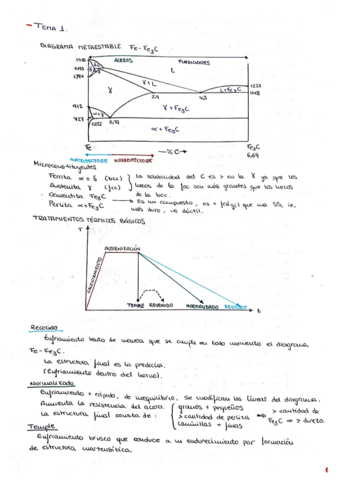 - TEMA 1.
DIAGRAMA METAESTABLE Fe-Fe3C
ACEROS FUNDICIONES
L
γ+L
γ
L+Fe3C
γ+Fe3C
912
727
α+Fe3C
Fe
%C
Fe3C
6,69
Microconstituyentes
Ferrita α=δ (bcc)
Austenita γ (fcc)
Cementita Fe3C
Perlita α+Fe3C
la solubilidad del C es > en la γ ya que los
huecos de la fcc son más grandes que los huecos
de la bcc.
Es un compuesto, es + frágil que una SS, ie,
más duro, no dúctil.
TRATAMIENTOS TÉRMICOS BÁSICOS
T
AUSTENIZACIÓN
CALENTAMIENTO
TEMPLE REVENIDO NORMALIZADO RECOCIDO
t
Recocido
Enfriamiento lento de manera que se cumple en todo momento el diagrama
Fe-Fe3C.
La estructura final es la predicha.
(Enfriamiento dentro del horno).
Normalizado
Enfriamiento + rápido, de inequilibrio. Se modifican las líneas del diagrama.
Aumenta la resistencia del acero.
La estructura final consta de:
granos + pequeños
> cantidad de perlita
laminillas + finas
> cantidad de
Fe3C ⇒ > dureza
Temple
Enfriamiento brusco que conduce a un endurecimiento por formación
de estructura martensítica.